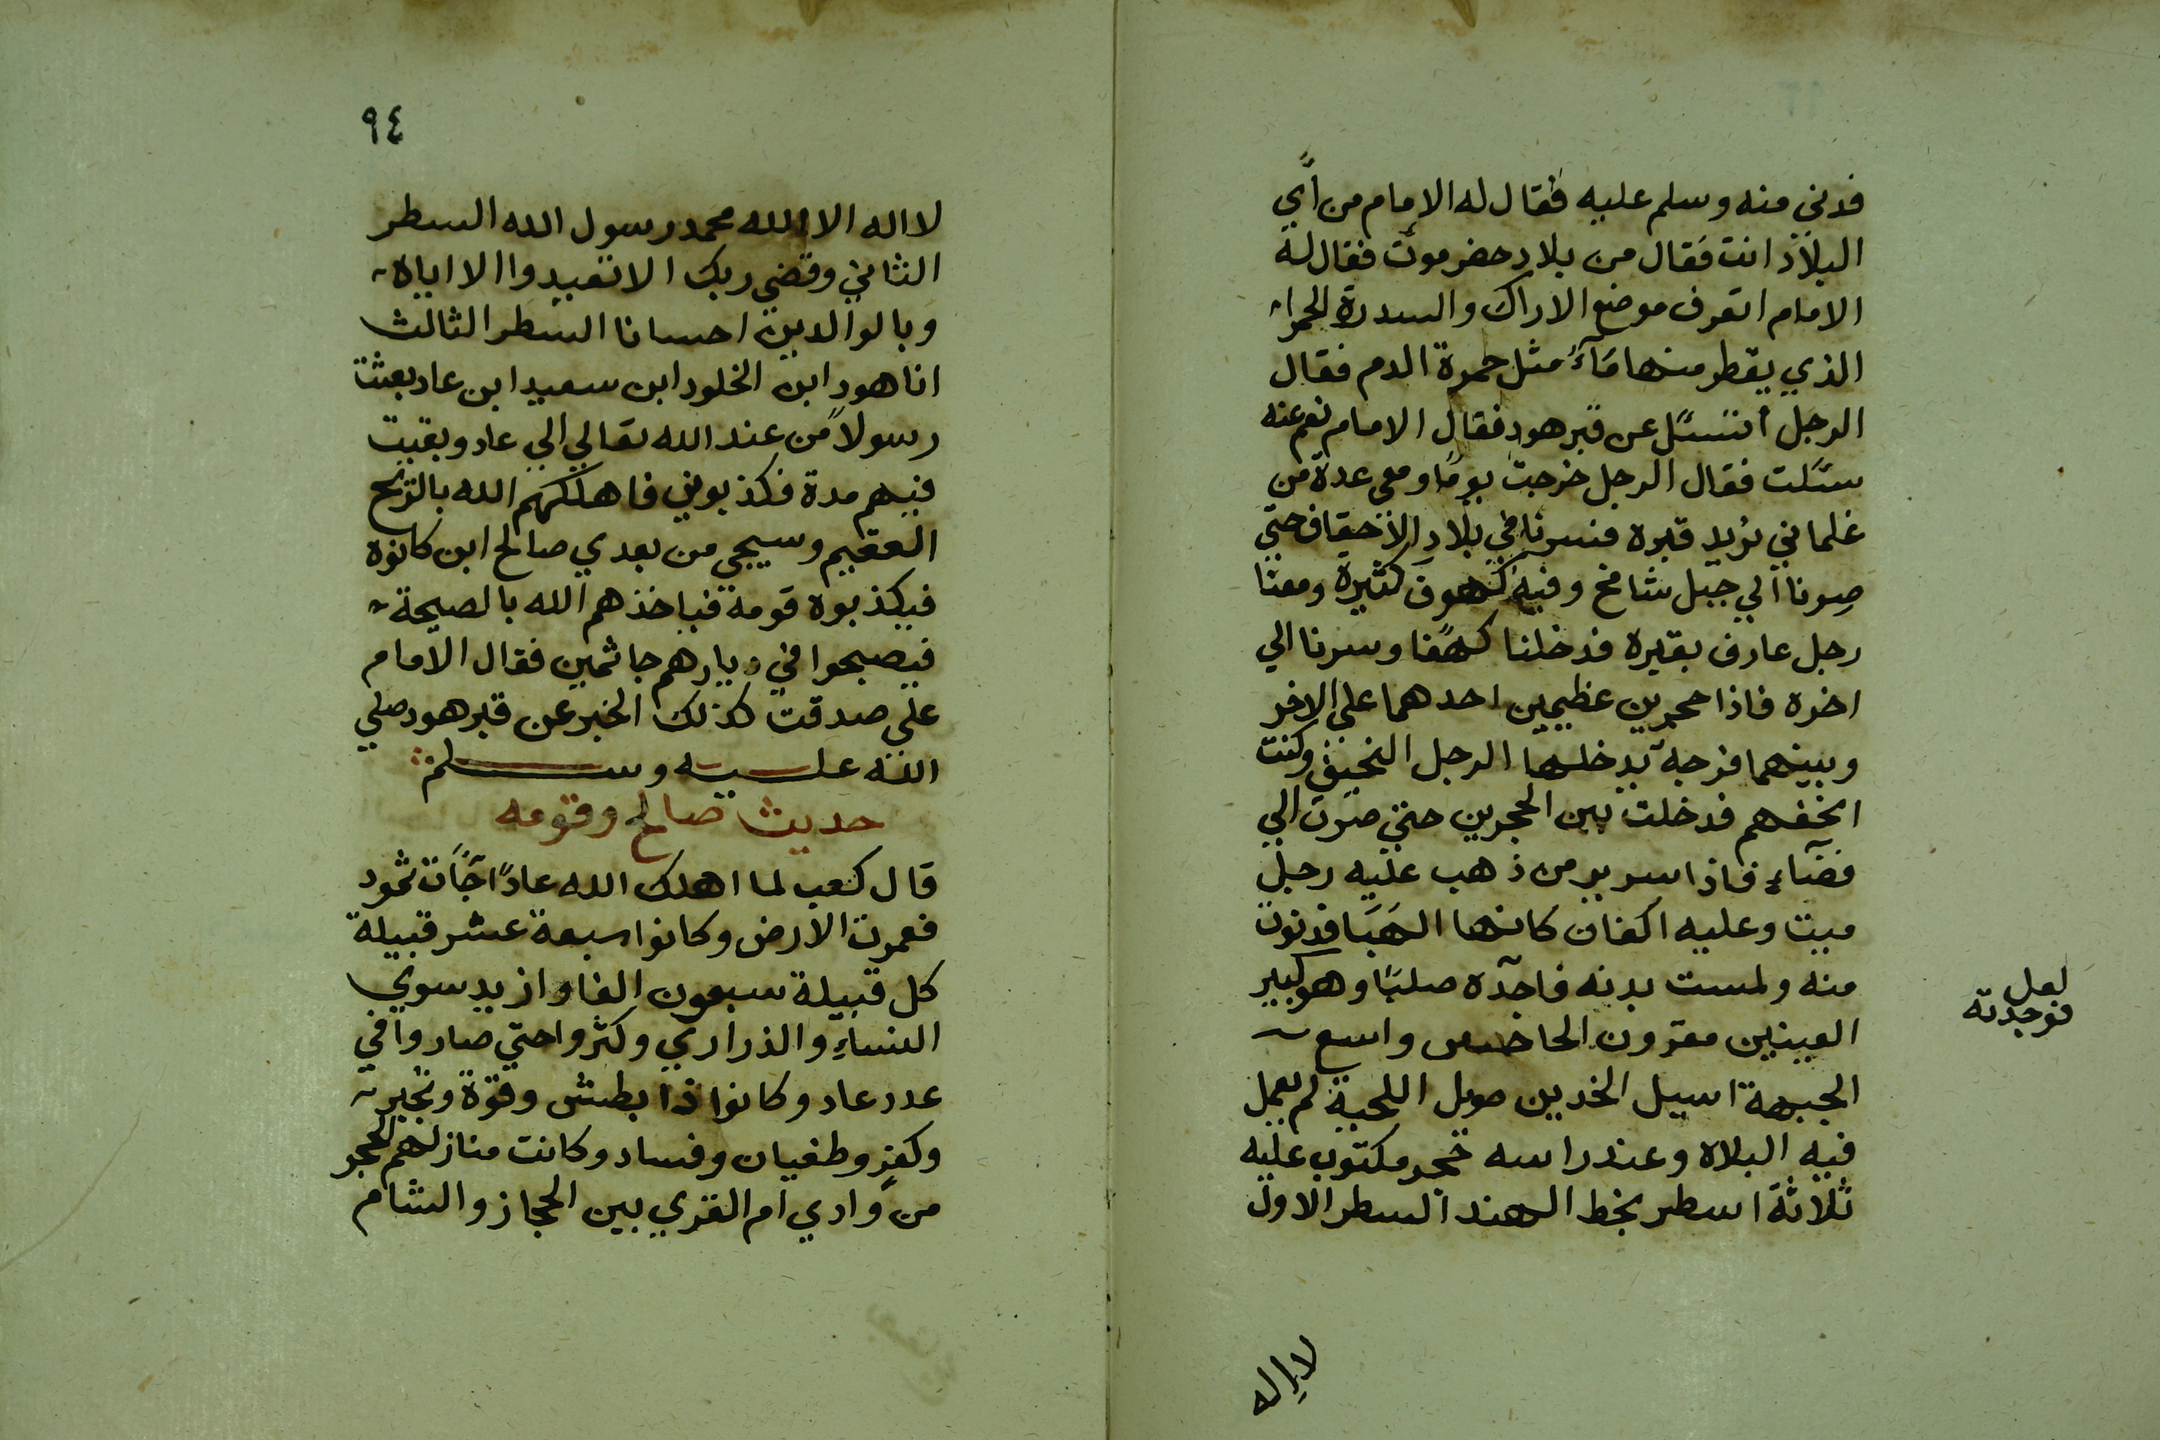 فدني منه وسلم عليه فقال له الامام من أي
البلاد انت فقال من بلاد حضرموت فقال له
الامام اتعرف موضع الاراك والسدرة الحمرا
الذي يقطر منها مَآءً مثل حمرة الدم فقال
الرجل أتسئل عن قبر هود فقال الامام نعم عنه
سئلت فقال الرجل خرجت يومًا ومعي عدة من
غلماني نريد قبره فسرنا في بلاد الاحقاف حتي
صرنا الي جبل شامخ وفيه كهوف كثيرة ومعنا
رجل عارف بقبره فدخلنا كهفًا وسرنا الي
اخره فاذا حجرين عظيمين احدهما علي الاخر
وبينهما فرجة يدخلها الرجل النحيف وكنت
انحفهم فدخلت بين الحجرين حتي صرت الي
فضآء فاذا سرير من ذهب عليه رجل
ميت وعليه اكفان كانها الهَبَا فدنوت
منه ولمست بدنه فاجده صلبًا وهو كبير
العينين مقرون الحاجبين واسع
الجبهة اسيل الخدين طويل اللحية لم يعمل
فيه البلاه وعند راسه حجر مكتوب عليه
ثلاثة اسطر بخط الهند السطر الاول
لعل
فوجدته
لا اله
٩٤
لا اله الا الله محمد رسول الله السطر
الثاني وقضي ربك الا تعبدوا الا اياه
وبالوالدين احسانا السطر الثالث
انا هود ابن الخلود ابن سعيد ابن عاد بعثت
رسولاً من عند الله تعالي الي عاد وبقيت
فيهم مدة فكذبوني فاهلكهم الله بالريح
العقيم وسيجي من بعدي صالح ابن كانوه
فيكذبوه قومه فياخذهم الله بالصيحة
فيصبحوا في ديارهم جاثمين فقال الامام
علي صدقت كذلك الخبر عن قبر هود صلي
الله عليه وسلم
حديث صالح وقومه
قال كعب لما اهلك الله عادًا جآت ثمود
فعمرت الارض وكانوا سبعة عشر قبيلة
كل قبيلة سبعون الفا وازيد سوي
النساء والذراري وكثروا حتي صاروا في
عدد عاد وكانوا ذا بطش وقوة وتجبر
وكفر وطغيان وفساد وكانت منازلهم الحجر
من وادي ام القري بين الحجاز والشام